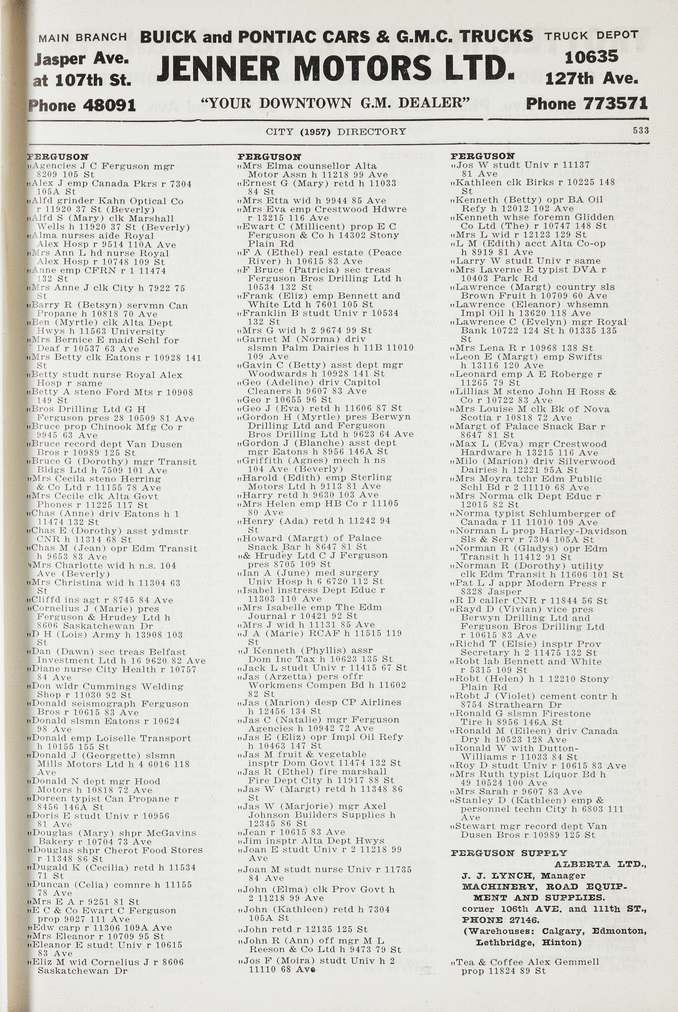 MAIN BRANCH
Jasper Ave.
at 107th St.
Phone 48091
BUICK and PONTIAC CARS & G.M.C. TRUCKS
JENNER MOTORS LTD.
"YOUR DOWNTOWN G.M. DEALER"
TRUCK DEPOT
10635
127th Ave.
Phone 773571
CITY (1957) DIRECTORY 533
FERGUSON
"Agencies J C Ferguson mgr
8209 105 St
"Alex J emp Canada Pkrs r 7304
105A St
"Alfd grinder Kahn Optical Co
r 11920 37 St (Beverly)
"Alfd S (Mary) clk Marshall
Wells h 11920 37 St (Beverly)
"Alma nurses aide Royal
Alex Hosp r 9514 110A Ave
"Mrs Ann L hd nurse Royal
Alex Hosp r 10748 109 St
"Anne emp CFRN r 1 11474
132 St
"Mrs Anne J clk City h 7922 75
St
"Barry R (Betsyn) servmn Can
Propane h 10818 70 Ave
"Ben (Myrtle) clk Alta Dept
Hwys h 11563 University
"Mrs Bernice E maid Schl for
Deaf r 10537 63 Ave
"Mrs Betty clk Eatons r 10928 141
St
"Betty studt nurse Royal Alex
Hosp r same
"Betty A steno Ford Mts r 10908
149 St
"Bros Drilling Ltd G H
Ferguson pres 28 10509 81 Ave
"Bruce prop Chinook Mfg Co r
9945 63 Ave
"Bruce record dept Van Dusen
Bros r 10989 125 St
"Bruce G (Dorothy) mgr Transit
Bldgs Ltd h 7509 101 Ave
"Mrs Cecila steno Herring
& Co Ltd r 11155 78 Ave
"Mrs Cecile clk Alta Govt
Phones r 11225 117 St
"Chas (Anne) driv Eatons h 1
11474 132 St
"Chas E (Dorothy) asst ydmstr
CNR h 11314 68 St
"Chas M (Jean) opr Edm Transit
h 9653 83 Ave
"Mrs Charlotte wid h n.s. 104
Ave (Beverly)
"Mrs Christina wid h 11304 63
St
"Cliffd ins agt r 8745 84 Ave
"Cornelius J (Marie) pres
Ferguson & Hrudey Ltd h
8606 Saskatchewan Dr
"D H (Lois) Army h 13908 103
St
"Dan (Dawn) sec treas Belfast
Investment Ltd h 16 9620 82 Ave
"Diane nurse City Health r 10757
84 Ave
"Don wldr Cummings Welding
Shop r 11030 92 St
"Donald seismograph Ferguson
Bros r 10615 83 Ave
"Donald slsmn Eatons r 10624
98 Ave
"Donald emp Loiselle Transport
h 10155 155 St
"Donald J (Georgette) slsmn
Mills Motors Ltd h 4 6016 118
Ave
"Donald N dept mgr Hood
Motors h 10818 72 Ave
"Doreen typist Can Propane r
8456 146A St
"Doris E studt Univ r 10956
81 Ave
"Douglas (Mary) shpr McGavins
Bakery r 10704 73 Ave
"Douglas shpr Cherot Food Stores
r 11348 86 St
"Dugald K (Cecilia) retd h 11534
71 St
"Duncan (Celia) comnre h 11155
78 Ave
"Mrs E A r 9251 81 St
"E C & Co Ewart C Ferguson
prop 9027 111 Ave
"Edw carp r 11306 109A Ave
"Mrs Eleanor r 10709 95 St
"Eleanor E studt Univ r 10615
83 Ave
"Eliz M wid Cornelius J r 8606
Saskatchewan Dr
FERGUSON
"Mrs Elma counsellor Alta
Motor Assn h 11218 99 Ave
"Ernest G (Mary) retd h 11033
84 St
"Mrs Etta wid h 9944 85 Ave
"Mrs Eva emp Crestwood Hdwre
r 13215 116 Ave
"Ewart C (Millicent) prop E C
Ferguson & Co h 14302 Stony
Plain Rd
"F A (Ethel) real estate (Peace
River) h 10615 83 Ave
"F Bruce (Patricia) sec treas
Ferguson Bros Drilling Ltd h
10534 132 St
"Frank (Eliz) emp Bennett and
White Ltd h 7601 105 St
"Franklin B studt Univ r 10534
132 St
"Mrs G wid h 2 9674 99 St
"Garnet M (Norma) driv
slsmn Palm Dairies h 11B 11010
109 Ave
"Gavin C (Betty) asst dept mgr
Woodwards h 10928 141 St
"Geo (Adeline) driv Capitol
Cleaners h 9607 83 Ave
"Geo r 10655 96 St
"Geo J (Eva) retd h 11606 87 St
"Gordon H (Myrtle) pres Berwyn
Drilling Ltd and Ferguson
Bros Drilling Ltd h 9623 64 Ave
"Gordon J (Blanche) asst dept
mgr Eatons h 8956 146A St
"Griffith (Agnes) mech h ns
104 Ave (Beverly)
"Harold (Edith) emp Sterling
Motors Ltd h 9113 81 Ave
"Harry retd h 9630 103 Ave
"Mrs Helen emp HB Co r 11105
80 Ave
"Henry (Ada) retd h 11242 94
St
"Howard (Margt) of Palace
Snack Bar h 8647 81 St
"& Hrudey Ltd C J Ferguson
pres 8705 109 St
"Ian A (June) med surgery
Univ Hosp h 6 6720 112 St
"Isabel instress Dept Educ r
11303 110 Ave
"Mrs Isabelle emp The Edm
Journal r 10421 92 St
"Mrs J wid h 11131 85 Ave
"J A (Marie) RCAF h 11515 119
St
"J Kenneth (Phyllis) assr
Dom Inc Tax h 10623 135 St
"Jack L studt Univ r 11415 67 St
"Jas (Arzetta) pers offr
Workmens Compen Bd h 11602
82 St
"Jas (Marion) desp CP Airlines
h 12456 134 St
"Jas C (Natalie) mgr Ferguson
Agencies h 10942 72 Ave
"Jas E (Eliz) opr Impl Oil Refy
h 10463 147 St
"Jas M fruit & vegetable
insptr Dom Govt 11474 132 St
"Jas R (Ethel) fire marshall
Fire Dept City h 11917 88 St
"Jas W (Margt) retd h 11348 86
St
"Jas W (Marjorie) mgr Axel
Johnson Builders Supplies h
12345 86 St
"Jean r 10615 83 Ave
"Jim insptr Alta Dept Hwys
"Joan E studt Univ r 2 11218 99
Ave
"Joan M studt nurse Univ r 11735
84 Ave
"John (Elma) clk Prov Govt h
2 11218 99 Ave
"John (Kathleen) retd h 7304
105A St
"John retd r 12135 125 St
"John R (Ann) off mgr M L
Reeson & Co Ltd h 9473 79 St
"Jos F (Moira) studt Univ h 2
11110 68 Ave
FERGUSON
"Jos W studt Univ r 11137
81 Ave
"Kathleen clk Birks r 10225 148
St
"Kenneth (Betty) opr BA Oil
Refy h 12012 102 Ave
"Kenneth whse foremn Glidden
Co Ltd (The) r 10747 148 St
"Mrs L wid r 12123 129 St
"L M (Edith) acct Alta Co-op
h 8919 81 Ave
"Larry W studt Univ r same
"Mrs Laverne E typist DVA r
10403 Park Rd
"Lawrence (Margt) country sls
Brown Fruit h 10709 60 Ave
"Lawrence (Eleanor) whsemn
Impl Oil h 13620 118 Ave
"Lawrence C (Evelyn) mgr Royal
Bank 10722 124 St h 01335 135
St
"Mrs Lena R r 10968 138 St
"Leon E (Margt) emp Swifts
h 13116 120 Ave
"Leonard emp A E Roberge r
11265 79 St
"Lillias M steno John H Ross &
Co r 10722 83 Ave
"Mrs Louise M clk Bk of Nova
Scotia r 10818 72 Ave
"Margt of Palace Snack Bar r
8647 81 St
"Max L (Eva) mgr Crestwood
Hardware h 13215 116 Ave
"Milo (Marion) driv Silverwood
Dairies h 12221 95A St
"Mrs Moyra tchr Edm Public
Schl Bd r 2 11110 68 Ave
"Mrs Norma clk Dept Educ r
12015 82 St
"Norma typist Schlumberger of
Canada r 11 11010 109 Ave
"Norman L prop Harley-Davidson
Sls & Serv r 7304 105A St
"Norman R (Gladys) opr Edm
Transit h 11412 91 St
"Norman R (Dorothy) utility
clk Edm Transit h 11606 101 St
"Pat L J appr Modern Press r
8328 Jasper
"R D caller CNR r 11844 56 St
"Rayd D (Vivian) vice pres
Berwyn Drilling Ltd and
Ferguson Bros Drilling Ltd
r 10615 83 Ave
"Richd T (Elsie) insptr Prov
Secretary h 2 11475 132 St
"Robt lab Bennett and White
r 5315 109 St
"Robt (Helen) h 1 12210 Stony
Plain Rd
"Robt J (Violet) cement contr h
8754 Strathearn Dr
"Ronald G slsmn Firestone
Tire h 8956 146A St
"Ronald M (Eileen) driv Canada
Dry h 10523 128 Ave
"Ronald W with Dutton-
Williams r 11033 84 St
"Roy D studt Univ r 10615 83 Ave
"Mrs Ruth typist Liquor Bd h
49 10524 100 Ave
"Mrs Sarah r 9607 83 Ave
"Stanley D (Kathleen) emp &
personnel techn City h 6803 111
Ave
"Stewart mgr record dept Van
Dusen Bros r 10989 125 St
FERGUSON SUPPLY
ALBERTA LTD.,
J. J. LYNCH, Manager
MACHINERY, ROAD EQUIP-
MENT AND SUPPLIES.
corner 106th AVE. and 111th ST.,
PHONE 27146.
(Warehouses: Calgary, Edmonton,
Lethbridge, Hinton)
"Tea & Coffee Alex Gemmell
prop 11824 89 St